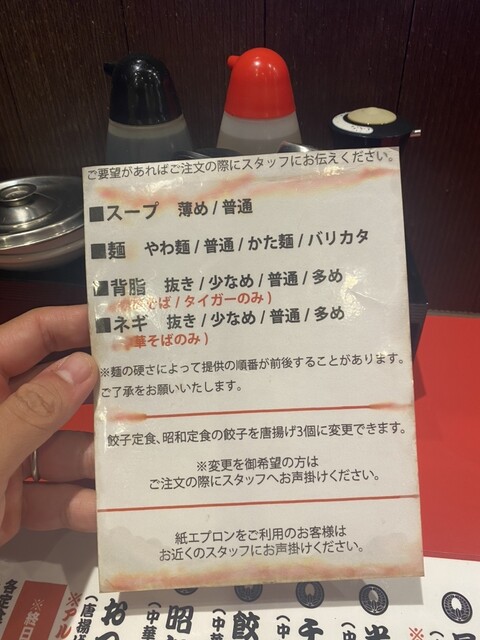 ご要望があればご注文の際にスタッフにお伝えください。
■スープ 薄め / 普通
■麺 やわ麺 / 普通 / かた麺 / バリカタ
■背脂 抜き / 少なめ / 普通 / 多め
そば / タイガーのみ )
■ネギ 抜き / 少なめ / 普通 / 多め
華そばのみ )
※麺の硬さによって提供の順番が前後することがあります。
ご了承をお願いいたします。
餃子定食、昭和定食の餃子を唐揚げ3個に変更できます。
※変更を御希望の方は
ご注文の際にスタッフへお声掛けください。
紙エプロンをご利用のお客様は
お近くのスタッフにお声掛けください。